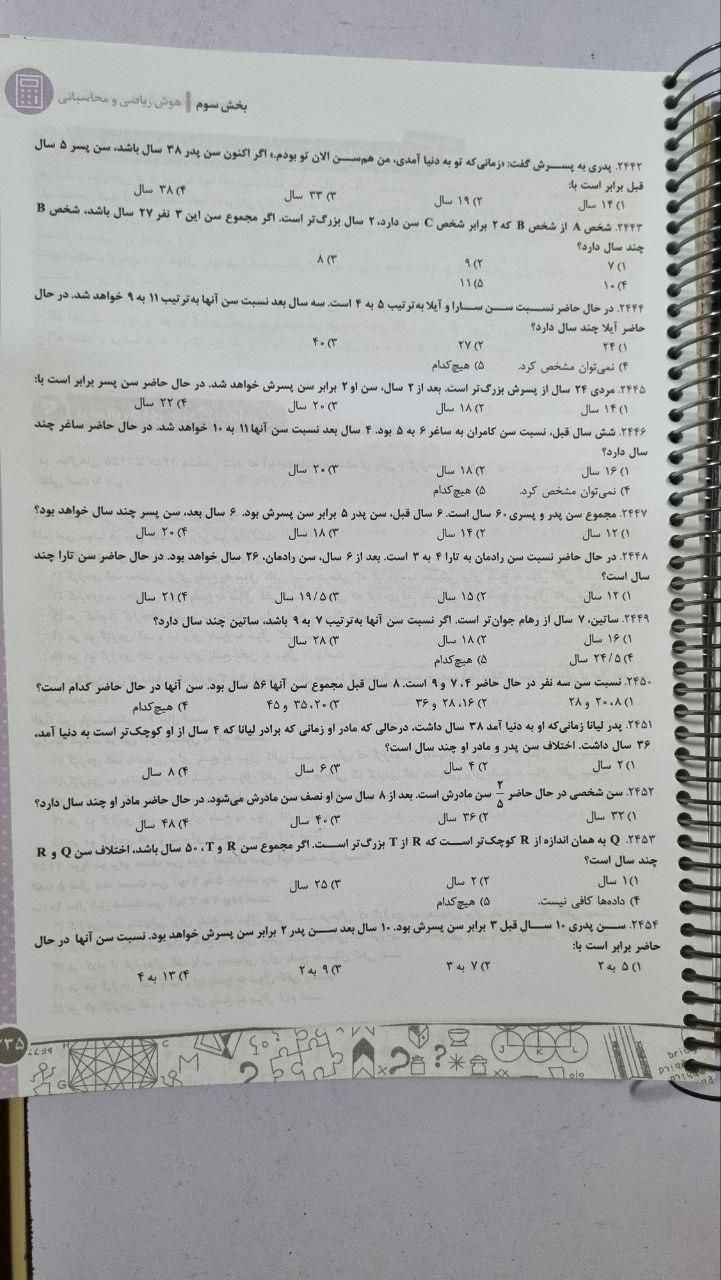 بخش سوم | هوش ریاضی و محاسباتی
۲۴۴۲. پدری به پســرش گفت: «زمانی‌که تو به دنیا آمدی، من هم‌ســن الان تو بودم.» اگر اکنون سن پدر ۳۸ سال باشد، سن پسر ۵ سال
قبل برابر است با:
۱) ۱۴ سال ۲) ۱۹ سال ۳) ۳۳ سال ۴) ۳۸ سال
۲۴۴۳. شخص A از شخص B که ۲ برابر شخص C سن دارد، ۲ سال بزرگ‌تر است. اگر مجموع سن این ۳ نفر ۲۷ سال باشد، شخص B
چند سال دارد؟
۱) ۷ ۲) ۹ ۳) ۸
۴) ۱۰ ۵) ۱۱
۲۴۴۴. در حال حاضر نســبت ســن ســارا و آیلا به‌ترتیب ۵ به ۴ است. سه سال بعد نسبت سن آنها به‌ترتیب ۱۱ به ۹ خواهد شد. در حال
حاضر آیلا چند سال دارد؟
۱) ۲۴ ۲) ۲۷ ۳) ۴۰
۴) نمی‌توان مشخص کرد. ۵) هیچ‌کدام
۲۴۴۵. مردی ۲۴ سال از پسرش بزرگ‌تر است. بعد از ۲ سال، سن او ۲ برابر سن پسرش خواهد شد. در حال حاضر سن پسر برابر است با:
۱) ۱۴ سال ۲) ۱۸ سال ۳) ۲۰ سال ۴) ۲۲ سال
۲۴۴۶. شش سال قبل، نسبت سن کامران به ساغر ۶ به ۵ بود. ۴ سال بعد نسبت سن آنها ۱۱ به ۱۰ خواهد شد. در حال حاضر ساغر چند
سال دارد؟
۱) ۱۶ سال ۲) ۱۸ سال ۳) ۲۰ سال
۴) نمی‌توان مشخص کرد. ۵) هیچ‌کدام
۲۴۴۷. مجموع سن پدر و پسری ۶۰ سال است. ۶ سال قبل، سن پدر ۵ برابر سن پسرش بود. ۶ سال بعد، سن پسر چند سال خواهد بود؟
۱) ۱۲ سال ۲) ۱۴ سال ۳) ۱۸ سال ۴) ۲۰ سال
۲۴۴۸. در حال حاضر نسبت سن رادمان به تارا ۴ به ۳ است. بعد از ۶ سال، سن رادمان، ۲۶ سال خواهد بود. در حال حاضر سن تارا چند
سال است؟
۱) ۱۲ سال ۲) ۱۵ سال ۳) ۱۹/۵ سال ۴) ۲۱ سال
۲۴۴۹. ساتین، ۷ سال از رهام جوان‌تر است. اگر نسبت سن آنها به‌ترتیب ۷ به ۹ باشد، ساتین چند سال دارد؟
۱) ۱۶ سال ۲) ۱۸ سال ۳) ۲۸ سال
۴) ۲۴/۵ سال ۵) هیچ‌کدام
۲۴۵۰. نسبت سن سه نفر در حال حاضر ۴، ۷ و ۹ است. ۸ سال قبل مجموع سن آنها ۵۶ سال بود. سن آنها در حال حاضر کدام است؟
۱) ۸، ۲۰ و ۲۸ ۲) ۱۶، ۲۸ و ۳۶ ۳) ۲۰، ۳۵ و ۴۵ ۴) هیچ‌کدام
۲۴۵۱. پدر لیانا زمانی‌که او به دنیا آمد ۳۸ سال داشت، درحالی که مادر او زمانی که برادر لیانا که ۴ سال از او کوچک‌تر است به دنیا آمد،
۳۶ سال داشت. اختلاف سن پدر و مادر او چند سال است؟
۱) ۲ سال ۲) ۴ سال ۳) ۶ سال ۴) ۸ سال
۲۴۵۲. سن شخصی در حال حاضر ۲/۵ سن مادرش است. بعد از ۸ سال سن او نصف سن مادرش می‌شود. در حال حاضر مادر او چند سال دارد؟
۱) ۳۲ سال ۲) ۳۶ سال ۳) ۴۰ سال ۴) ۴۸ سال
۲۴۵۳. Q به همان اندازه از R کوچک‌تر اســت که R از T بزرگ‌تر اســت. اگر مجموع سن R و T، ۵۰ سال باشد، اختلاف سن Q و R
چند سال است؟
۱) ۱ سال ۲) ۲ سال ۳) ۲۵ سال
۴) داده‌ها کافی نیست. ۵) هیچ‌کدام
۲۴۵۴. ســن پدری ۱۰ ســال قبل ۳ برابر سن پسرش بود. ۱۰ سال بعد ســن پدر ۲ برابر سن پسرش خواهد بود. نسبت سن آنها در حال
حاضر برابر است با:
۱) ۵ به ۲ ۲) ۷ به ۳ ۳) ۹ به ۲ ۴) ۱۳ به ۴